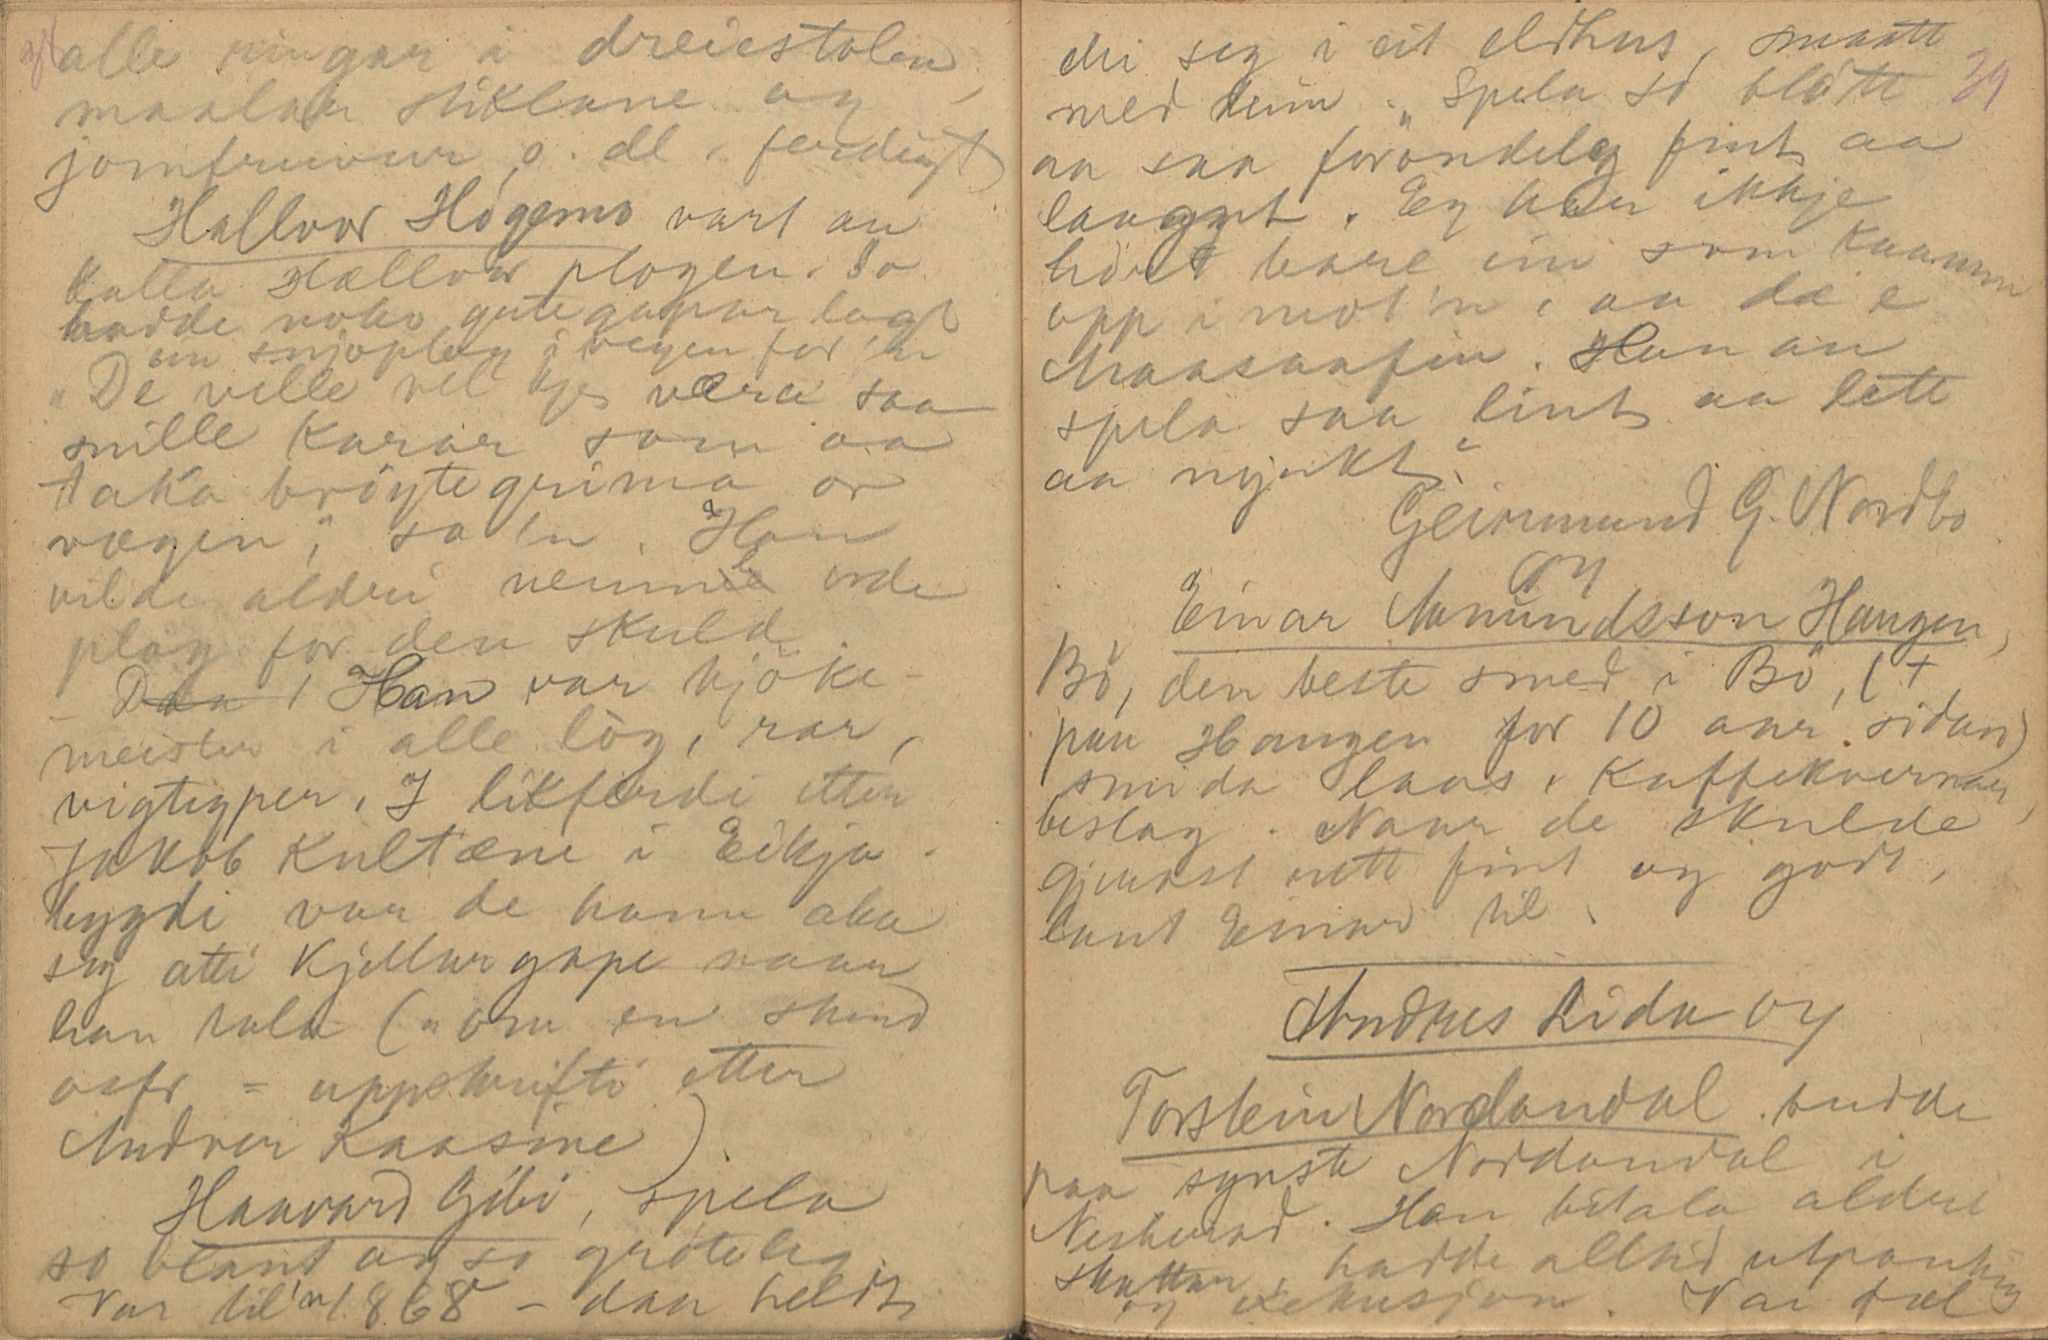 alle ringar i dreiestolen,
maala stiklane og
jomfruvur o. dl. ferdigt
Hallvor Høgemo vart au
kalla Hallvor plogen. So
hadde noko gutegapar lagt
ein snjoplog i vegen for 'n
"De ville vel kje væra saa
snille karar som aa
taka brøytegrima or
vægen", sa 'n. Han
vilde aldri nemne orde
plog for den skuld.
- Han var kjøke-
meister i alle lòg, rar,
vigtigper. I likferdi etter
Jakob Kultæne i Eikja-
bygdi var de hann aka
seg atti kjellargape naar
han tala ("om en stund
osfr = uppskrifti etter
Andres Kaasine)
Haavard Gibi, spela
so blant og so grøteleg.
Var til 'n 1868 - daa heldt
39
dei seg i eit eldhus, smaatt
med heim. "Spela so blòtt
aa saa forundeleg fint aa
langt. Eg har ikkje
høirt bare ein som kaamm
opp i mot 'n, aa dæ e
Maasaafin. Han au
spela saa lint aa lett
aa mjukt".
Geirmund G. Nordbø
og
Einar Amundsson Haugen,
Bø, den beste smed i Bø, (+
paa Haugen for 10 aar sidan)
smida laas, kaffekvernar,
beslag. Naar de skulde
gjerast nett fint og godt,
laut Einar til.
Andres Lida og
Torstein Nordandal. budde
paa synste Nordandal i
Nesherad. Han betala aldri
skattar, hadde alltid utpanting
og eksekusjon. Var fæl